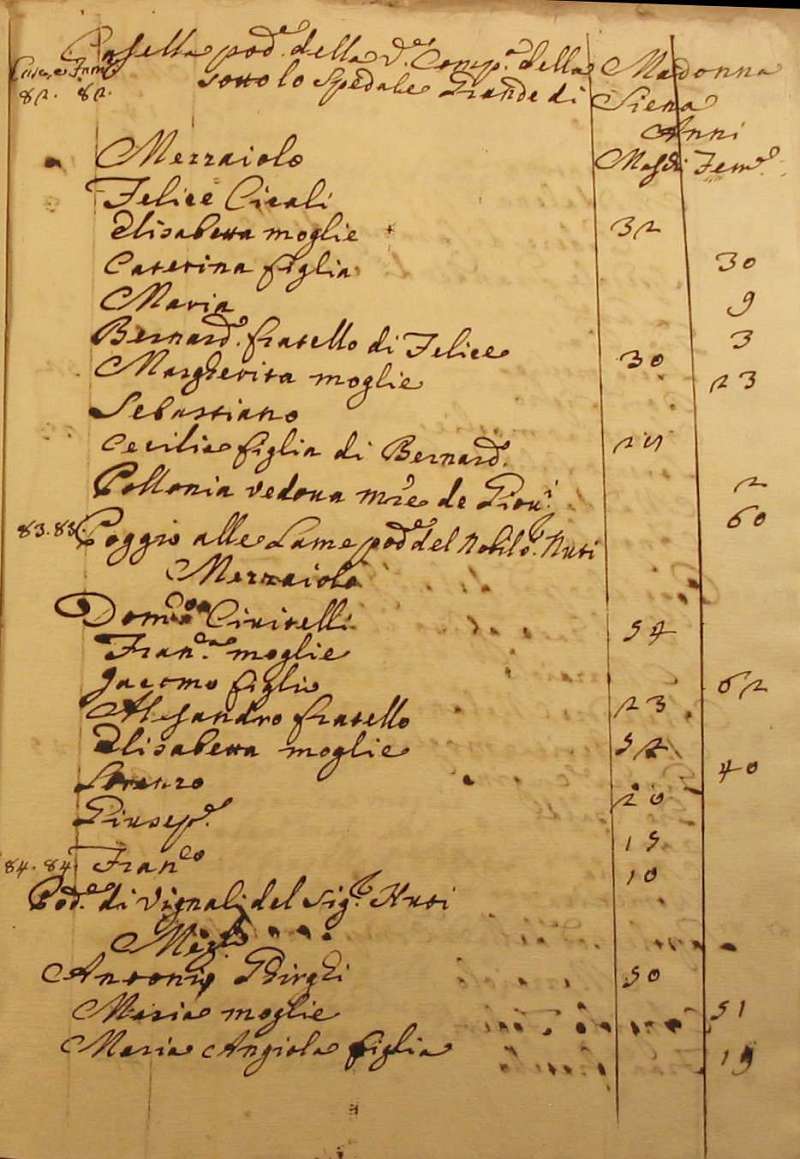 Casella pod.e della V.e Comp.a della Madonna
Case, e Fam.e sotto lo Spedale Grande di Siena
82. 82. Anni
Mezzaiolo Maschi Fem.e
Felice Cicali
Elisabetta moglie 32
Caterina figlia 30
Maria 9
Bernard.o fratello di Felice 30 3
Margherita moglie 23
Sebastiano
Cecilia figlia di Bernard.o
Pollonia vedova m̃re de Giov.i 2
83. 83. Poggio alle Lame pod.e del Nobil Nuti 60
Mezzaiolo
Dom.co Civitelli 54
Fran.ca moglie
Jacomo figlio 62
Alessandro fratello 23
Elisabetta moglie 52
Lorenzo 40
Giusep.e 20
15
84. 84. Fran.co 10
Pod.e di Vignali del Sig.r Nuti
Mez.lo
Antonio Ghirghi 50
Maria moglie 51
Maria Angiola figlia 19